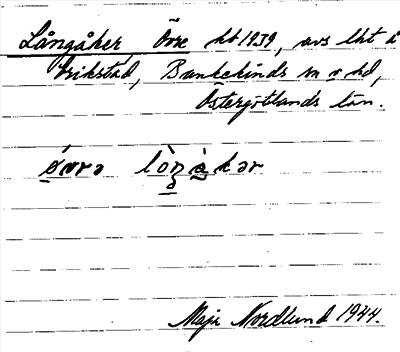 Långåker Övre kt 1939, avs lht i
Örikstad, Bankekinds sn o hd,
Östergötlands län.
ö́vrə lòŋàkər
Maja Nordlund 1944.